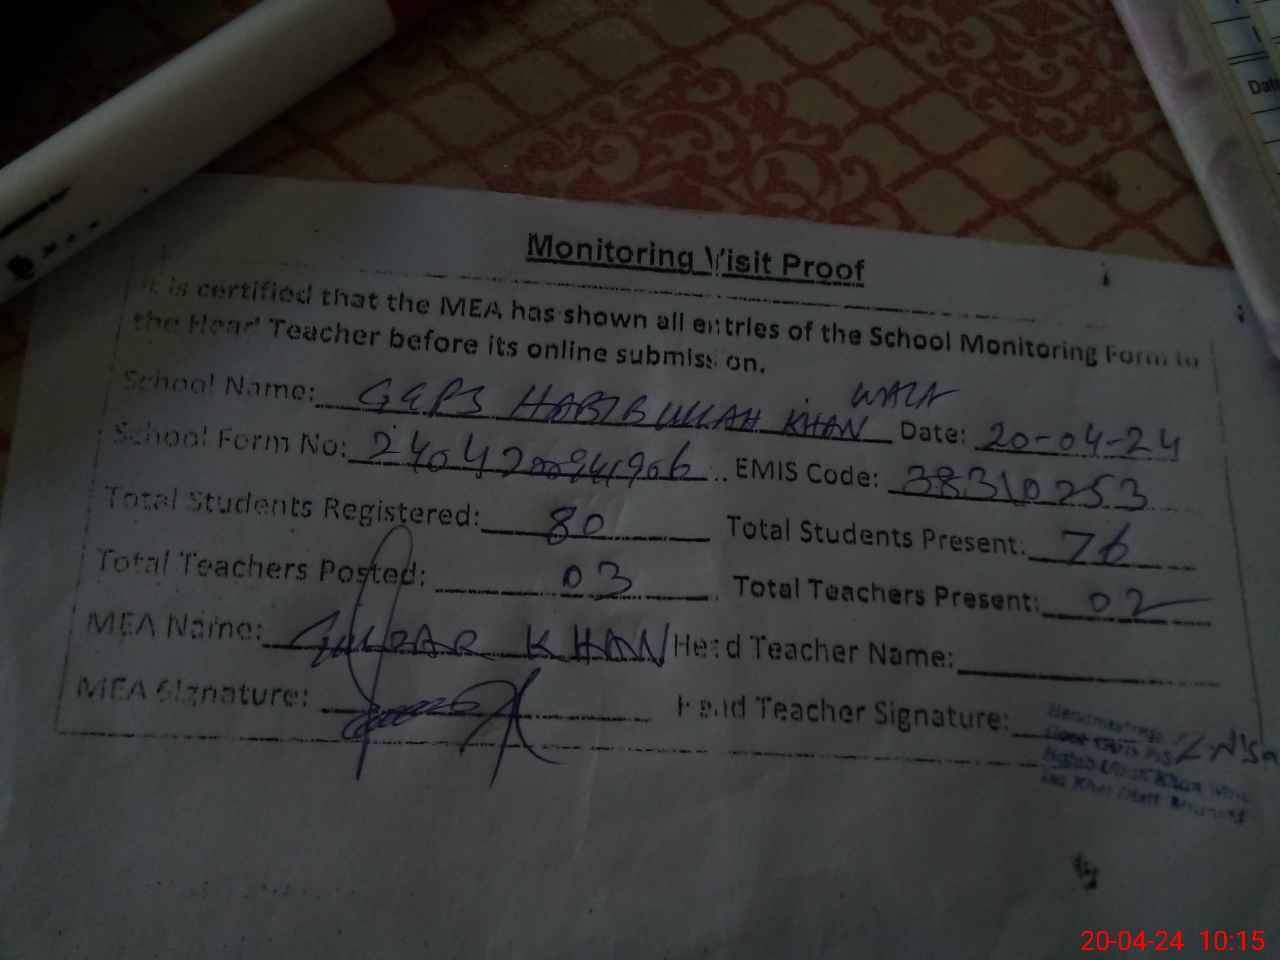 Monitoring Visit Proof
It is certified that the MEA has shown all entries of the School Monitoring Form to
the Head Teacher before its online submission.
School Name: GGPS HABIB ULLAH KHAN WALA Date: 20-04-24
School Form No: EMIS Code: 38310253
Total Students Registered: 80 Total Students Present: 76
Total Teachers Posted: 03 Total Teachers Present: 02
MEA Name: GULZAR KHAN Head Teacher Name:
MEA Signature: Head Teacher Signature:
Headmistress
Habib Ullah Khan
20-04-24 10:15